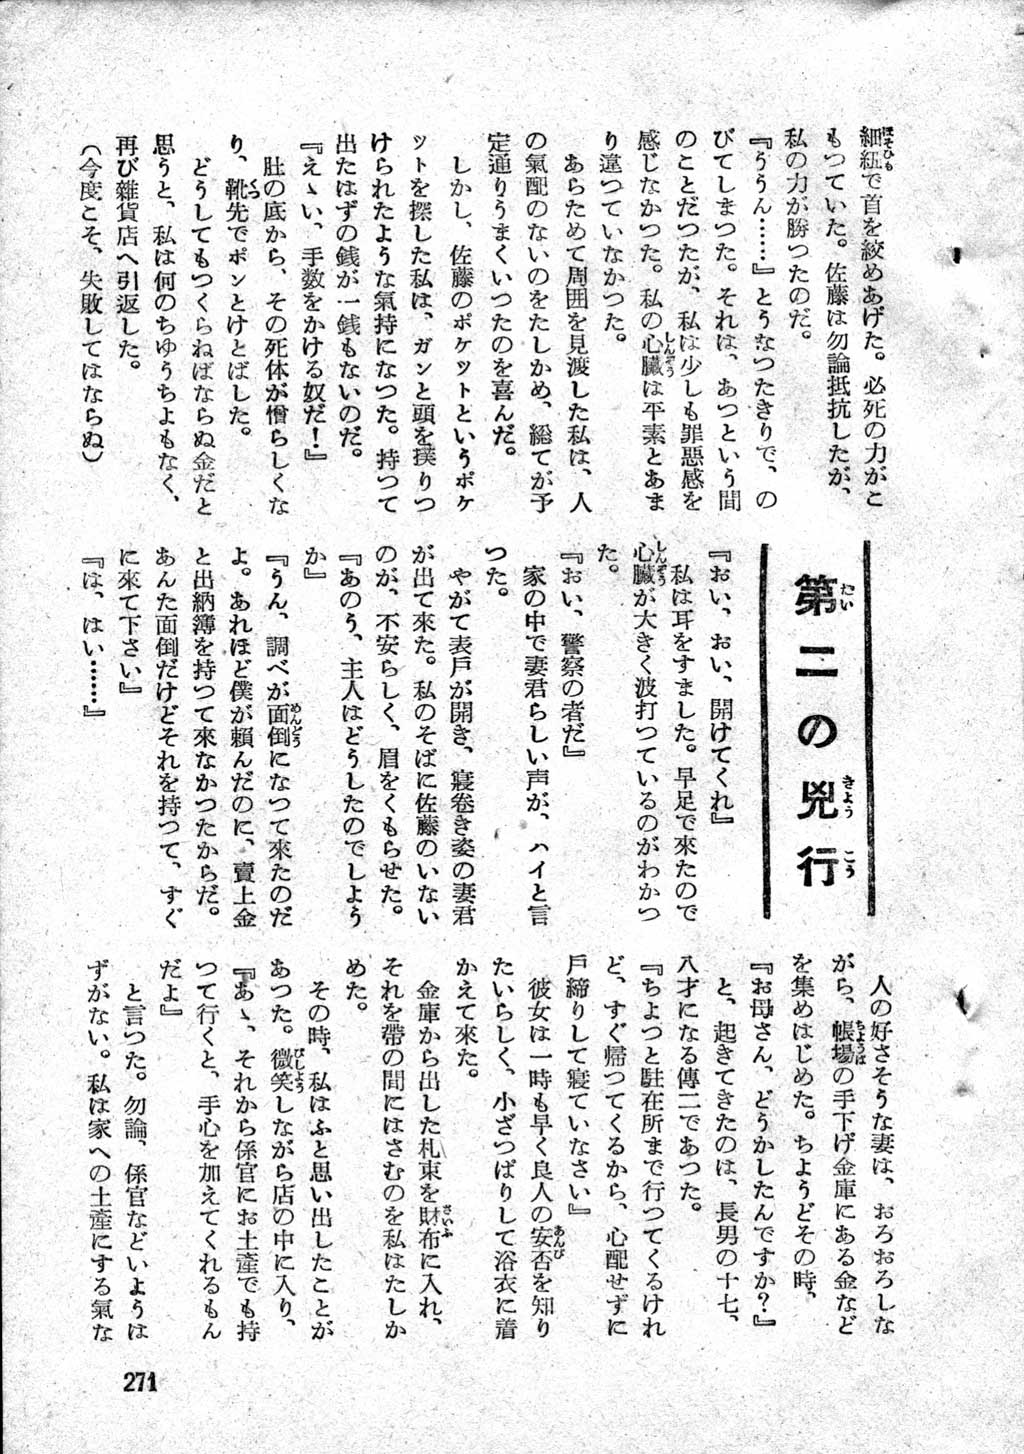 細紐で首を絞めあげた。必死の力がこ
もつていた。佐藤は勿論抵抗したが、
私の力が勝つたのだ。
『ううん……』とうなつたきりで、の
びてしまつた。それは、あつという間
のことだつたが、私は少しも罪悪感を
感じなかつた。私の心臓は平素とあま
り違つていなかつた。
あらためて周囲を見渡した私は、人
の氣配のないのをたしかめ、総てが予
定通りうまくいつたのを喜んだ。
しかし、佐藤のポケットというポケ
ットを探した私は、ガンと頭を撲りつ
けられたような氣持になつた。持つて
出たはずの銭が一銭もないのだ。
『えゝい、手数をかける奴だ！』
肚の底から、その死体が憎らしくな
り、靴先でポンとけとばした。
どうしてもつくらねばならぬ金だと
思うと、私は何のちゆうちよもなく、
再び雜貨店へ引返した。
（今度こそ、失敗してはならぬ）
第二の兇行
『おい、おい、開けてくれ』
私は耳をすました。早足で來たので
心臓が大きく波打つているのがわかつ
た。
『おい、警察の者だ』
家の中で妻君らしい声が、ハイと言
つた。
やがて表戸が開き、寝巻き姿の妻君
が出て來た。私のそばに佐藤のいない
のが、不安らしく、眉をくもらせた。
『あのう、主人はどうしたのでしよう
か』
『うん、調べが面倒になつて來たのだ
よ。あれほど僕が頼んだのに、賣上金
と出納簿を持つて來なかつたからだ。
あんた面倒だけどそれを持つて、すぐ
に來て下さい』
『は、はい……』
人の好さそうな妻は、おろおろしな
がら、帳場の手下げ金庫にある金など
を集めはじめた。ちようどその時、
『お母さん、どうかしたんですか？』
と、起きてきたのは、長男の十七、
八才になる傳二であつた。
『ちよつと駐在所まで行つてくるけれ
ど、すぐ帰つてくるから、心配せずに
戸締りして寝ていなさい』
彼女は一時も早く良人の安否を知り
たいらしく、小ざつぱりして浴衣に着
かえて来た。
金庫から出した札束を財布に入れ、
それを帯の間にはさむのを私はたしか
めた。
その時、私はふと思い出したことが
あつた。微笑しながら店の中に入り、
『あゝ、それから係官にお土產でも持
つて行くと、手心を加えてくれるもん
だよ』
と言つた。勿論、係官などいようは
ずがない。私は家への土產にする氣な
271